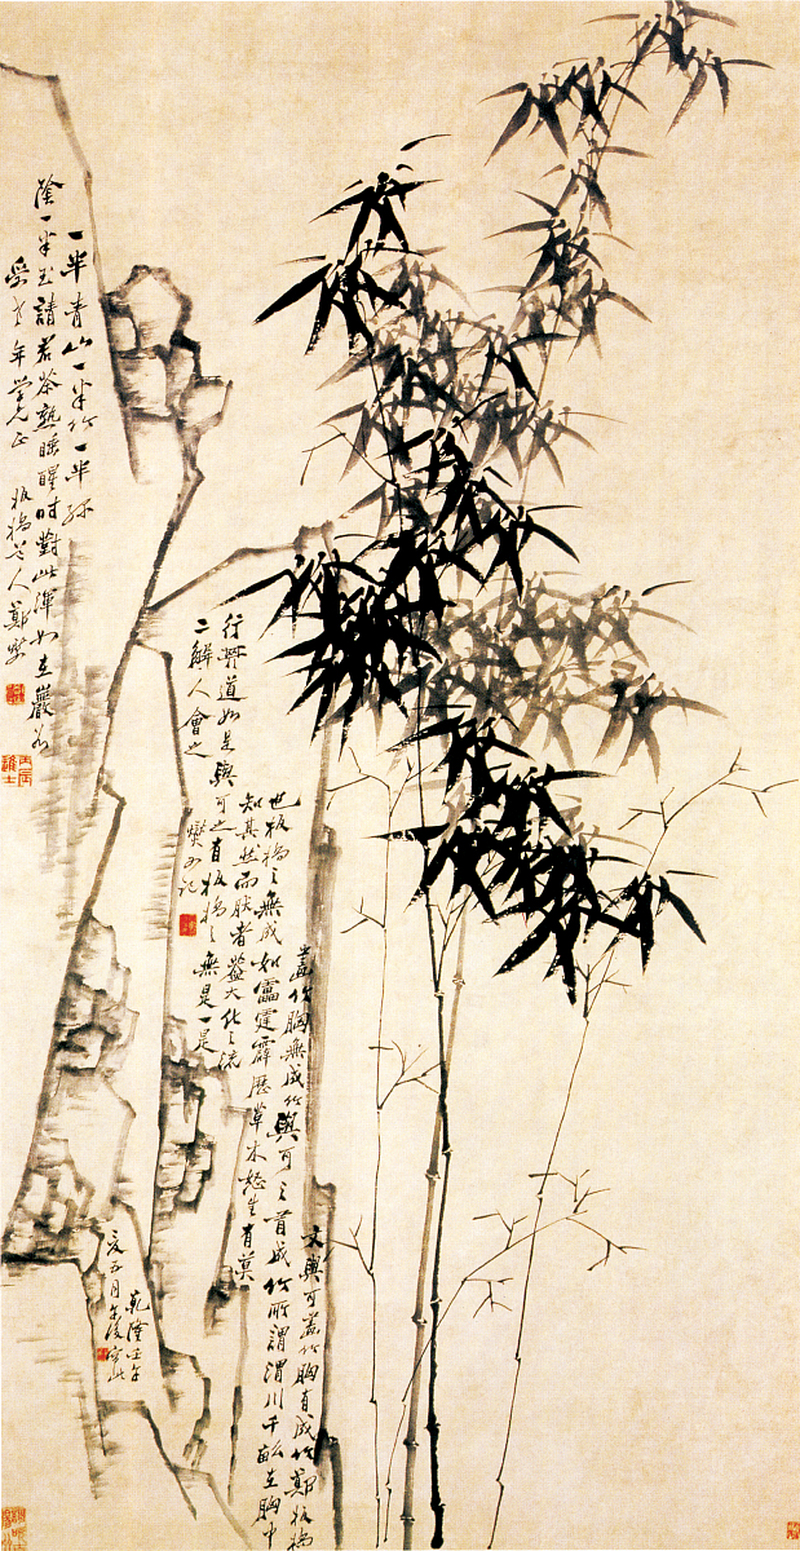 一半青山一半竹一半綠
陰一半玉請君茶熟睡醒時對此渾如在巖谷
年學兄正 板橋道人鄭燮
文與可畫竹胸有成竹鄭板橋
畫竹胸無成竹與可之有成竹所謂渭川千畝在胸中
也板橋之無成如靁霆霹歷草木怒生有莫
知其然而然者蓋大化之流
行其道如是與可之有板橋之無是一是
二解人會之
燮又記
乾隆壬午
夏五月午後寫此
丙辰進士